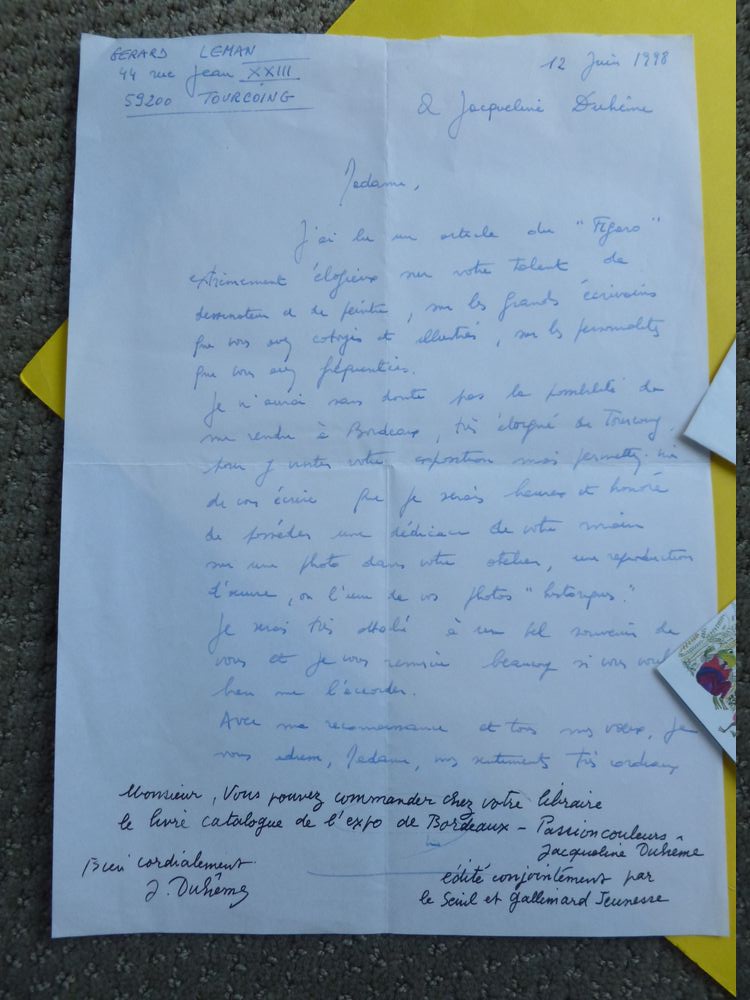 GERARD LEMAN
44 rue Jean XXIII
59200 TOURCOING
12 Juin 1998
à Jacqueline Duhême
Madame,
J'ai lu un article du "Figaro"
extrêmement élogieux sur votre talent de
dessinateur et de peintre, sur les grands écrivains
que vous avez cotoyés et illustrés, sur les personnalités
que vous avez fréquentées.
Je n'aurai sans doute pas la possibilité de
me rendre à Bordeaux, très éloigné de Tourcoing,
pour y visiter votre exposition mais permettez-moi
de vous écrire que je serais heureux et honoré
de posséder une dédicace de votre main
sur une photo dans votre atelier, une reproduction
d'oeuvre, ou l'une de vos photos "historiques."
Je serai très attaché à un bel souvenir de
vous et je vous remercie beaucoup si vous
bien me l'accorder.
Avec ma reconnaissance et tous mes voeux, je
vous adresse, Madame, mes sentiments très cordiaux
Monsieur, Vous pouvez commander chez votre libraire
le livre catalogue de l'expo de Bordeaux - Passion couleurs -
Jacqueline Duheme
édité conjointement par
le Seuil et Gallimard Jeunesse
Bien cordialement
J. Duhême